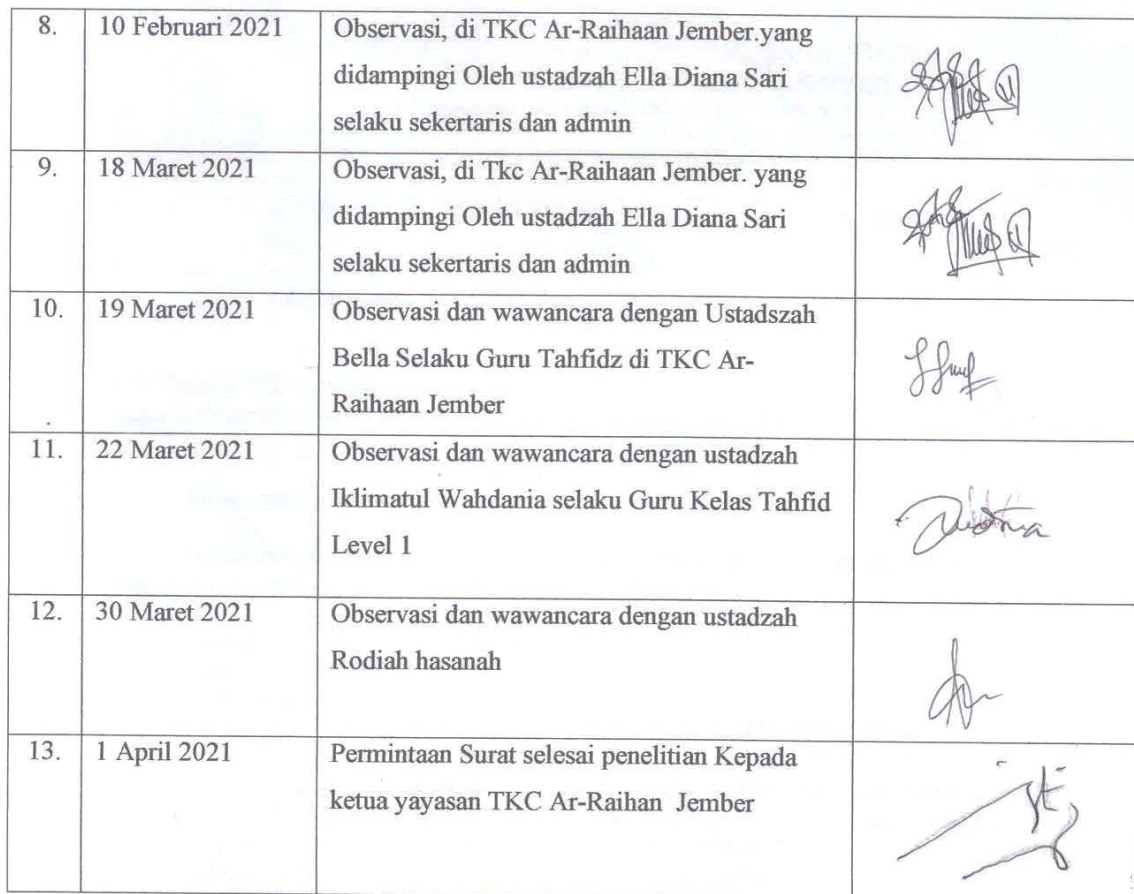 8. 10 Februari 2021 Observasi, di TKC Ar-Raihaan Jember.yang
didampingi Oleh ustadzah Ella Diana Sari
selaku sekertaris dan admin
9. 18 Maret 2021 Observasi, di Tkc Ar-Raihaan Jember. yang
didampingi Oleh ustadzah Ella Diana Sari
selaku sekertaris dan admin
10. 19 Maret 2021 Observasi dan wawancara dengan Ustadszah
Bella Selaku Guru Tahfidz di TKC Ar-
Raihaan Jember
11. 22 Maret 2021 Observasi dan wawancara dengan ustadzah
Iklimatul Wahdania selaku Guru Kelas Tahfid
Level 1
12. 30 Maret 2021 Observasi dan wawancara dengan ustadzah
Rodiah hasanah
13. 1 April 2021 Permintaan Surat selesai penelitian Kepada
ketua yayasan TKC Ar-Raihan Jember